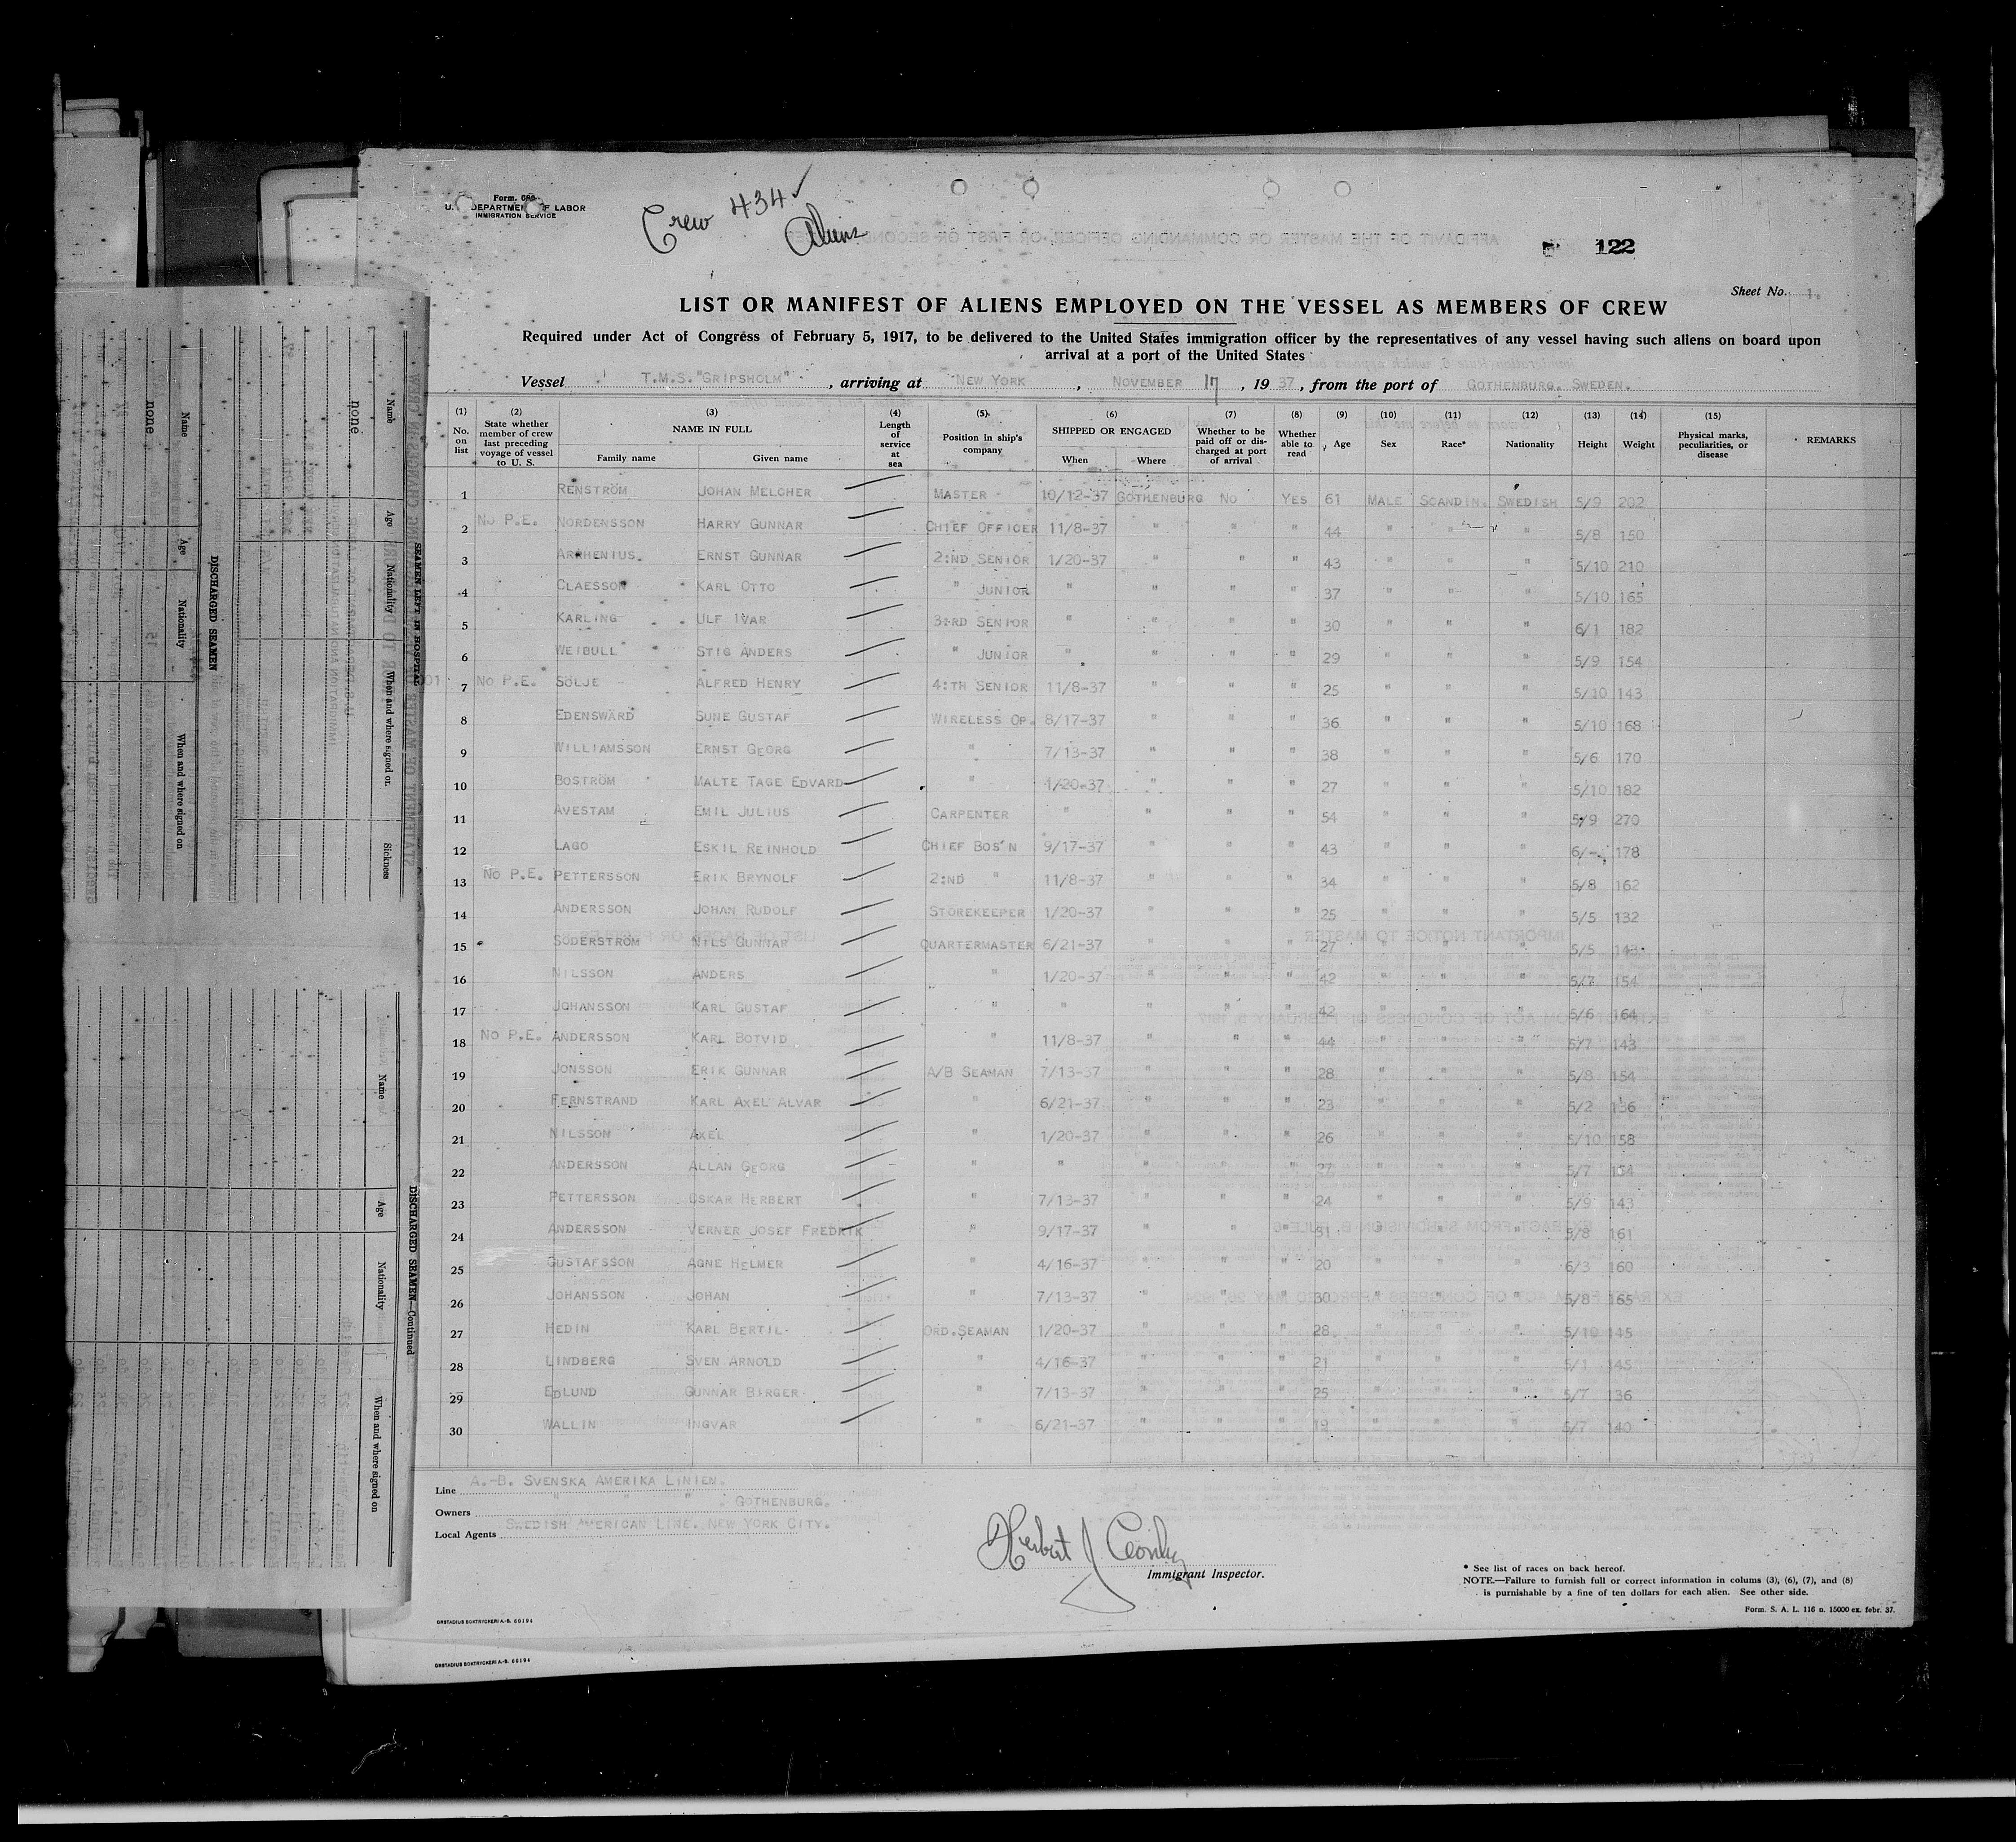 Form. 680
U. S. DEPARTMENT OF LABOR
IMMIGRATION SERVICE
Crew 434 ✓
Aliens
122
Sheet No. 1.
LIST OR MANIFEST OF ALIENS EMPLOYED ON THE VESSEL AS MEMBERS OF CREW
Required under Act of Congress of February 5, 1917, to be delivered to the United States immigration officer by the representatives of any vessel having such aliens on board upon
arrival at a port of the United States
Vessel T.M.S. "GRIPSHOLM", arriving at NEW YORK, NOVEMBER 17, 19 37, from the port of GOTHENBURG. SWEDEN.
(1) No. on list (2) State whether member of crew last preceding voyage of vessel to U. S. (3) NAME IN FULL Family name Given name (4) Length of service at sea (5) Position in ship's company (6) SHIPPED OR ENGAGED When Where (7) Whether to be paid off or discharged at port of arrival (8) Whether able to read (9) Age (10) Sex (11) Race* (12) Nationality (13) Height (14) Weight (15) Physical marks, peculiarities, or disease REMARKS
1 RENSTRÖM JOHAN MELCHER MASTER 10/12-37 GOTHENBURG NO YES 61 MALE SCANDIN. SWEDISH 5/9 202
2 NO P.E. NORDENSSON HARRY GUNNAR CHIEF OFFICER 11/8-37 " " " 44 " " " 5/8 150
3 ARRHENIUS. ERNST GUNNAR 2:ND SENIOR 1/20-37 " " " 43 " " " 5/10 210
4 CLAESSON KARL OTTO " JUNIOR " " " " 37 " " " 5/10 165
5 KARLING ULF IVAR 3:RD SENIOR " " " " 30 " " " 6/1 182
6 WEIBULL STIG ANDERS " JUNIOR " " " " 29 " " " 5/9 154
7 NO P.E. SÖLJE ALFRED HENRY 4:TH SENIOR 11/8-37 " " " 25 " " " 5/10 143
8 EDENSWÄRD SUNE GUSTAF WIRELESS OP. 8/17-37 " " " 36 " " " 5/10 168
9 WILLIAMSSON ERNST GEORG " 7/13-37 " " " 38 " " " 5/6 170
10 BOSTRÖM MALTE TAGE EDVARD " 1/20-37 " " " 27 " " " 5/10 182
11 AVESTAM EMIL JULIUS CARPENTER " " " " 54 " " " 5/9 270
12 LAGO ESKIL REINHOLD CHIEF BOS'N 9/17-37 " " " 43 " " " 6/- 178
13 NO P.E. PETTERSSON ERIK BRYNOLF 2:ND " 11/8-37 " " " 34 " " " 5/8 162
14 ANDERSSON JOHAN RUDOLF STOREKEEPER 1/20-37 " " " 25 " " " 5/5 132
15 SÖDERSTRÖM NILS GUNNAR QUARTERMASTER 6/21-37 " " " 27 " " " 5/5 143
16 NILSSON ANDERS " 1/20-37 " " " 42 " " " 5/7 154
17 JOHANSSON KARL GUSTAF " " " " " 42 " " " 5/6 164
18 NO P.E. ANDERSSON KARL BOTVID " 11/8-37 " " " 44 " " " 5/7 143
19 JONSSON ERIK GUNNAR A/B SEAMAN 7/13-37 " " " 28 " " " 5/8 154
20 FERNSTRAND KARL AXEL ALVAR " 6/21-37 " " " 23 " " " 5/2 136
21 NILSSON AXEL " 1/20-37 " " " 26 " " " 5/10 158
22 ANDERSSON ALLAN GEORG " " " " " 27 " " " 5/7 154
23 PETTERSSON OSKAR HERBERT " 7/13-37 " " " 24 " " " 5/9 143
24 ANDERSSON VERNER JOSEF FREDRIK " 9/17-37 " " " 31 " " " 5/8 161
25 GUSTAFSSON AGNE HELMER " 4/16-37 " " " 20 " " " 6/3 160
26 JOHANSSON JOHAN " 7/13-37 " " " 30 " " " 5/8 165
27 HEDIN KARL BERTIL ORD. SEAMAN 1/20-37 " " " 28 " " " 5/10 145
28 LINDBERG SVEN ARNOLD " 4/16-37 " " " 21 " " " 5/1 145
29 EDLUND GUNNAR BIRGER " 7/13-37 " " " 25 " " " 5/7 136
30 WALLIN INGVAR " 6/21-37 " " " 19 " " " 5/7 140
Line A.-B. SVENSKA AMERIKA LINIEN.
Owners " " " GOTHENBURG.
Local Agents SWEDISH AMERICAN LINE. NEW YORK CITY.
Herbert J
Immigrant Inspector.
* See list of races on back hereof.
NOTE.—Failure to furnish full or correct information in colums (3), (6), (7), and (8)
is purnishable by a fine of ten dollars for each alien. See other side.
Form. S. A. L. 116 n. 15000 ex. febr. 37.
ORSTADIUS BOKTRYCKERI A.-B. 66194
ORSTADIUS BOKTRYCKERI A.-B. 66194
SEAMEN LEFT IN HOSPITAL
Name Age Nationality When and where signed on Sickness
none
DISCHARGED SEAMEN
Name Age Nationality When and where signed on
none
DISCHARGED SEAMEN—Continued
Name Age Nationality When and where signed on